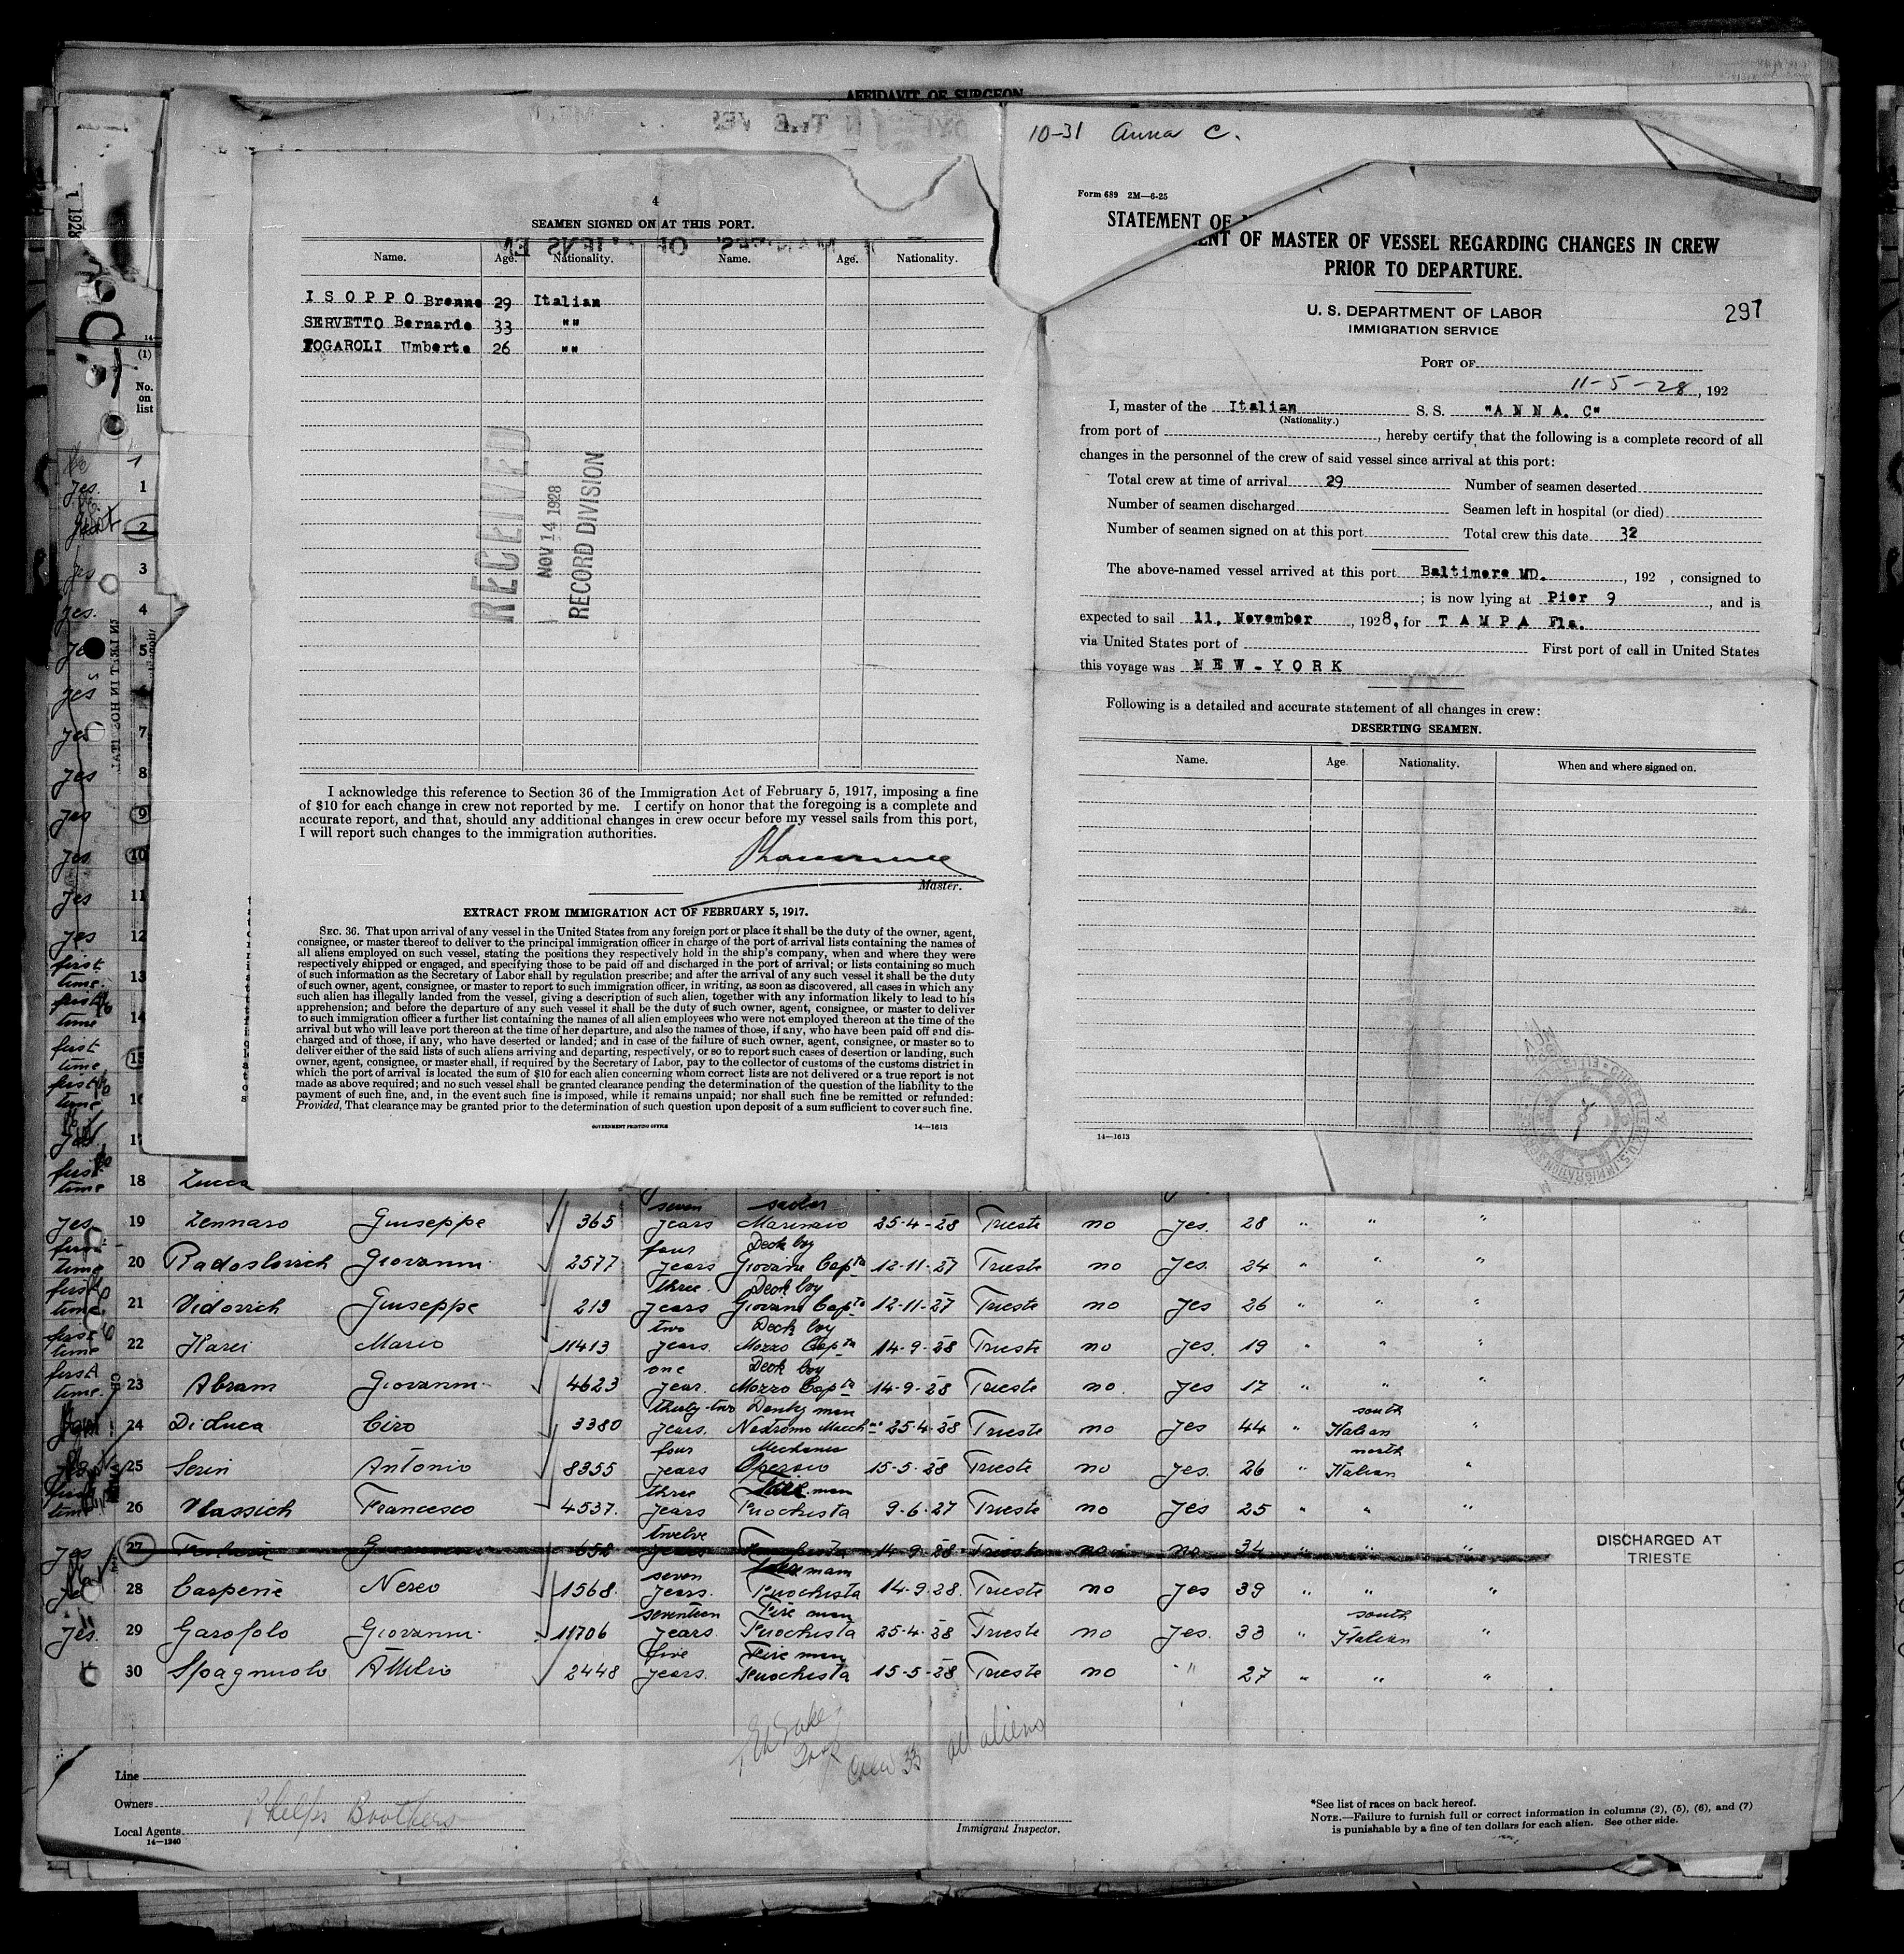 AFFIDAVIT OF SURGEON
10-31 Anna C.
4
SEAMEN SIGNED ON AT THIS PORT.
Name. Age. Nationality. Name. Age. Nationality.
I S O P P O Brenne 29 Italian
SERVETTO Bernardo 33 ""
FOGAROLI Umberto 26 ""
RECEIVED
NOV 14 1928
RECORD DIVISION
I acknowledge this reference to Section 36 of the Immigration Act of February 5, 1917, imposing a fine
of $10 for each change in crew not reported by me. I certify on honor that the foregoing is a complete and
accurate report, and that, should any additional changes in crew occur before my vessel sails from this port,
I will report such changes to the immigration authorities.
Master.
EXTRACT FROM IMMIGRATION ACT OF FEBRUARY 5, 1917.
SEC. 36. That upon arrival of any vessel in the United States from any foreign port or place it shall be the duty of the owner, agent,
consignee, or master thereof to deliver to the principal immigration officer in charge of the port of arrival lists containing the names of
all aliens employed on such vessel, stating the positions they respectively hold in the ship's company, when and where they were
respectively shipped or engaged, and specifying those to be paid off and discharged in the port of arrival; or lists containing so much
of such information as the Secretary of Labor shall by regulation prescribe; and after the arrival of any such vessel it shall be the duty
of such owner, agent, consignee, or master to report to such immigration officer, in writing, as soon as discovered, all cases in which any
such alien has illegally landed from the vessel, giving a description of such alien, together with any information likely to lead to his
apprehension; and before the departure of any such vessel it shall be the duty of such owner, agent, consignee, or master to deliver
to such immigration officer a further list containing the names of all alien employees who were not employed thereon at the time of the
arrival but who will leave port thereon at the time of her departure, and also the names of those, if any, who have been paid off and dis-
charged and of those, if any, who have deserted or landed; and in case of the failure of such owner, agent, consignee, or master so to
deliver either of the said lists of such aliens arriving and departing, respectively, or so to report such cases of desertion or landing, such
owner, agent, consignee, or master shall, if required by the Secretary of Labor, pay to the collector of customs of the customs district in
which the port of arrival is located the sum of $10 for each alien concerning whom correct lists are not delivered or a true report is not
made as above required; and no such vessel shall be granted clearance pending the determination of the question of the liability to the
payment of such fine, and, in the event such fine is imposed, while it remains unpaid; nor shall such fine be remitted or refunded:
Provided, That clearance may be granted prior to the determination of such question upon deposit of a sum sufficient to cover such fine.
GOVERNMENT PRINTING OFFICE 14—1613
Form 689 2M—6-25
STATEMENT OF
ENT OF MASTER OF VESSEL REGARDING CHANGES IN CREW
PRIOR TO DEPARTURE.
U. S. DEPARTMENT OF LABOR
IMMIGRATION SERVICE
297
PORT OF
11-5-28, 192
I, master of the Italian S. S. "A N N A. C"
(Nationality.)
from port of , hereby certify that the following is a complete record of all
changes in the personnel of the crew of said vessel since arrival at this port:
Total crew at time of arrival 29 Number of seamen deserted
Number of seamen discharged Seamen left in hospital (or died)
Number of seamen signed on at this port Total crew this date 32
The above-named vessel arrived at this port Baltimore MD. , 192 , consigned to
; is now lying at Pier 9 , and is
expected to sail 11, November , 1928, for T A M P A Fla.
via United States port of First port of call in United States
this voyage was N E W - Y O R K
Following is a detailed and accurate statement of all changes in crew:
DESERTING SEAMEN.
Name. Age. Nationality. When and where signed on.
14—1613
(1)
No.
on
list
1
yes. 1
2
yes 3
yes. 4
yes 5
yes
yes 7
yes 8
yes 9
yes 10
yes 11
yes 12
first time. 13
first time 14
first time, 15
first time
yes.
first time 18 Zucca
seven sailor
yes 19 Zennaro Giuseppe 365 years Marinaio 25-4-28 Trieste no yes. 28 " " "
four Deck boy
first time 20 Radoslovich Giovanni 2577 years Giovane Capta 12-11-27 Trieste no yes. 24 " " "
three Deck boy
first time. 21 Vidovich Giuseppe 213 years Giovane Capta 12-11-27 Trieste no yes 26 " " "
two Deck boy
first time 22 Harei Mario 11413 years. Mozzo Capta 14-9-28 Trieste no yes. 19 " " "
one Deck boy
first time. 23 Abram Giovanni 4623 year. Mozzo Capta 14-9-28 Trieste no. yes 17 " " "
thirty-two Donkey man south
24 Di Luca Ciro 3380 years. Nostromo Macch 25-4-28 Trieste no yes 44 " Italian "
four Mechanic north
25 Serin Antonio 8355 years Operaio 15-5-28 Trieste no yes. 26 " Italian "
three Fire man
first time 26 Vlassich Francesco 4537. years Fuochista 9-6-27 Trieste no yes 25 " " "
twelve
yes 27 652 years Fuochista 14-9-28 Trieste no no 34 " " " DISCHARGED AT
TRIESTE
seven Fire man
28 Carpenè Nereo 1568 years. Fuochista 14-9-28. Trieste no yes 39 " " "
seventeen Fire man south
yes. 29 Garofolo Giovanni 11706 years Fuochista 25-4-28 Trieste no yes. 33 " Italian "
five Fire man
30 Spagnuolo Attilio 2448 years. Fuochista 15-5-28 Trieste no " 27 " " "
Crew 33 all aliens
Line
Owners
Phelps Brothers
Local Agents
14—1240
Immigrant Inspector.
*See list of races on back hereof.
NOTE.—Failure to furnish full or correct information in columns (2), (5), (6), and (7)
is punishable by a fine of ten dollars for each alien. See other side.